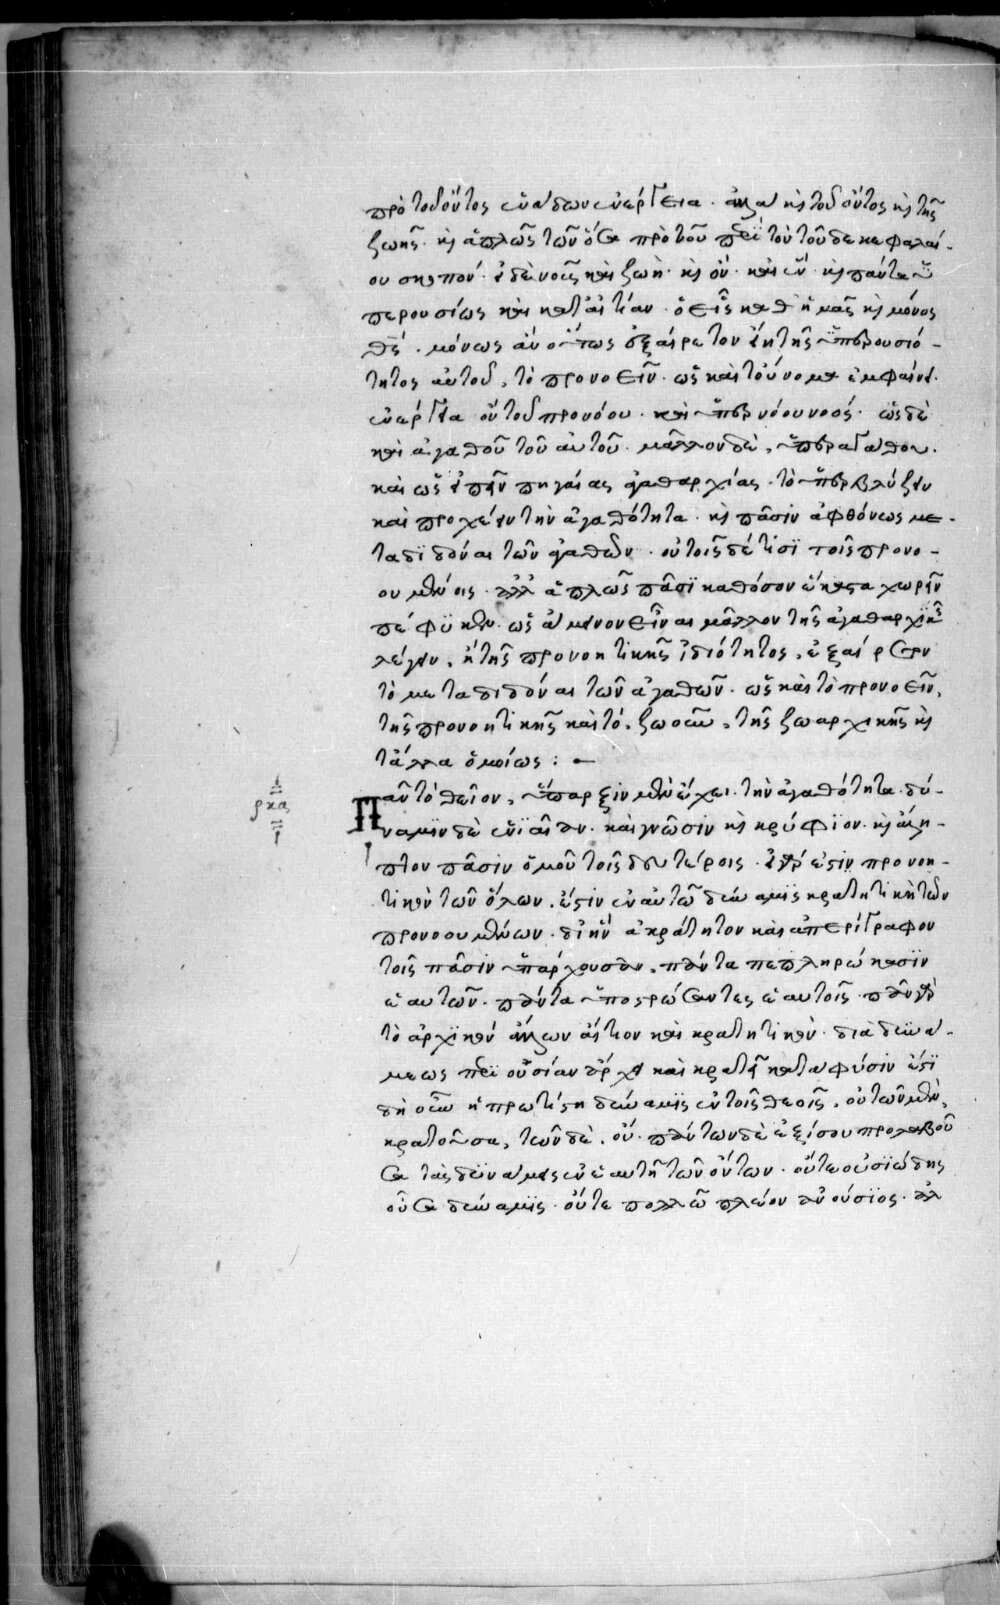 πρὸ τοῦ ὄντος
ζωῆς. καὶ ἁπλῶς τῶν ὄντων πρὸ τοῦ περὶ τὸν τοῦδε κεφαλαί-
ου σκοπόν. εἰ δὲ νοῦς καὶ ζωὴ. καὶ ὄν. καὶ ἕν. καὶ πάντα ὑ-
περουσίως καὶ κατ' αἰτίαν. ὁ εἷς καθ' ἡμᾶς καὶ μόνος
θεός. μόνως ἂν οὕτως ἐξαίρετον εἴη τῆς ὑπερουσιό-
τητος αὐτοῦ, τὸ προνοεῖν. ὡς καὶ τοὔνομα ἐμφαίνει.
ἐνέργεια οὖν τοῦ προνόου. καὶ ὑπὲρ νόου νοός. ὡς δὲ
καὶ ἀγαθοῦ τοῦ αὐτοῦ. μᾶλλον δὲ, ὑπεραγάθου.
καὶ ὡς εἰπεῖν πηγαίας ἀγαθαρχίας. τὸ ὑπερβλύζειν
καὶ προχέειν τὴν ἀγαθότητα. καὶ πᾶσιν ἀφθόνως με-
ταδιδόναι τῶν ἀγαθῶν. οὔ τοῖς δέ τισι τοῖς προνο-
ουμένοις. ἀλλ' ἁπλῶς πᾶσι καθόσον ἕκαστα χωρεῖν
πέφυκεν. ὡς ἄμεινον εἶναι μᾶλλον τῆς ἀγαθαρχικῆς
λέγειν, ἢ τῆς προνοητικῆς ἰδιότητος, ἐξαίρετον
τὸ μεταδιδόναι τῶν ἀγαθῶν. ὡς καὶ τὸ προνοεῖν,
τῆς προνοητικῆς καὶ τό, ζωοῦν, τῆς ζωαρχικῆς καὶ
τἆλλα ὁμοίως :
ρκα Πᾶν τὸ θεῖον, ὕπαρξιν μὲν ἔχει τὴν ἀγαθότητα. δύ-
ναμιν δὲ ἑνιαίαν. καὶ γνῶσιν καὶ κρύφιον. καὶ ἄλη-
πτον πᾶσιν ὁμοῦ τοῖς δευτέροις. εἰ γάρ ἐστιν προνοη-
τικὸν τῶν ὅλων. ἔστιν ἐν αὐτῷ δύναμις κρατητικὴ τῶν
προνοουμένων. δι' ἣν ἀκράτητον καὶ ἀπερίγραφον
τοῖς πᾶσιν ὑπάρχουσαν. πάντα πεπληρώκασιν
ἑαυτῶν. πάντα ὑποστρώσαντες ἑαυτοῖς. πᾶν γὰρ
τὸ ἀρχικόν ἄλλων αἴτιον καὶ κρατητικόν. διὰ δυνά-
μεως περιουσίαν ἄρχει καὶ κρατεῖ κατα φύσιν ἔστι
δὴ οὖν ἡ πρωτίστη δύναμις ἐν τοῖς θεοῖς. οὐ τῶν μὲν,
κρατοῦσα, τῶν δὲ, οὔ. πάντων δὲ ἐξίσου προλαβοῦ
σα τὰς δυνάμεις ἐν ἑαυτῇ τῶν ὄντων. οὔτε οὐσιώδης
οὖσα δύναμις. οὔτε πολλῷ πλέον ἀνούσιος. ἀλ